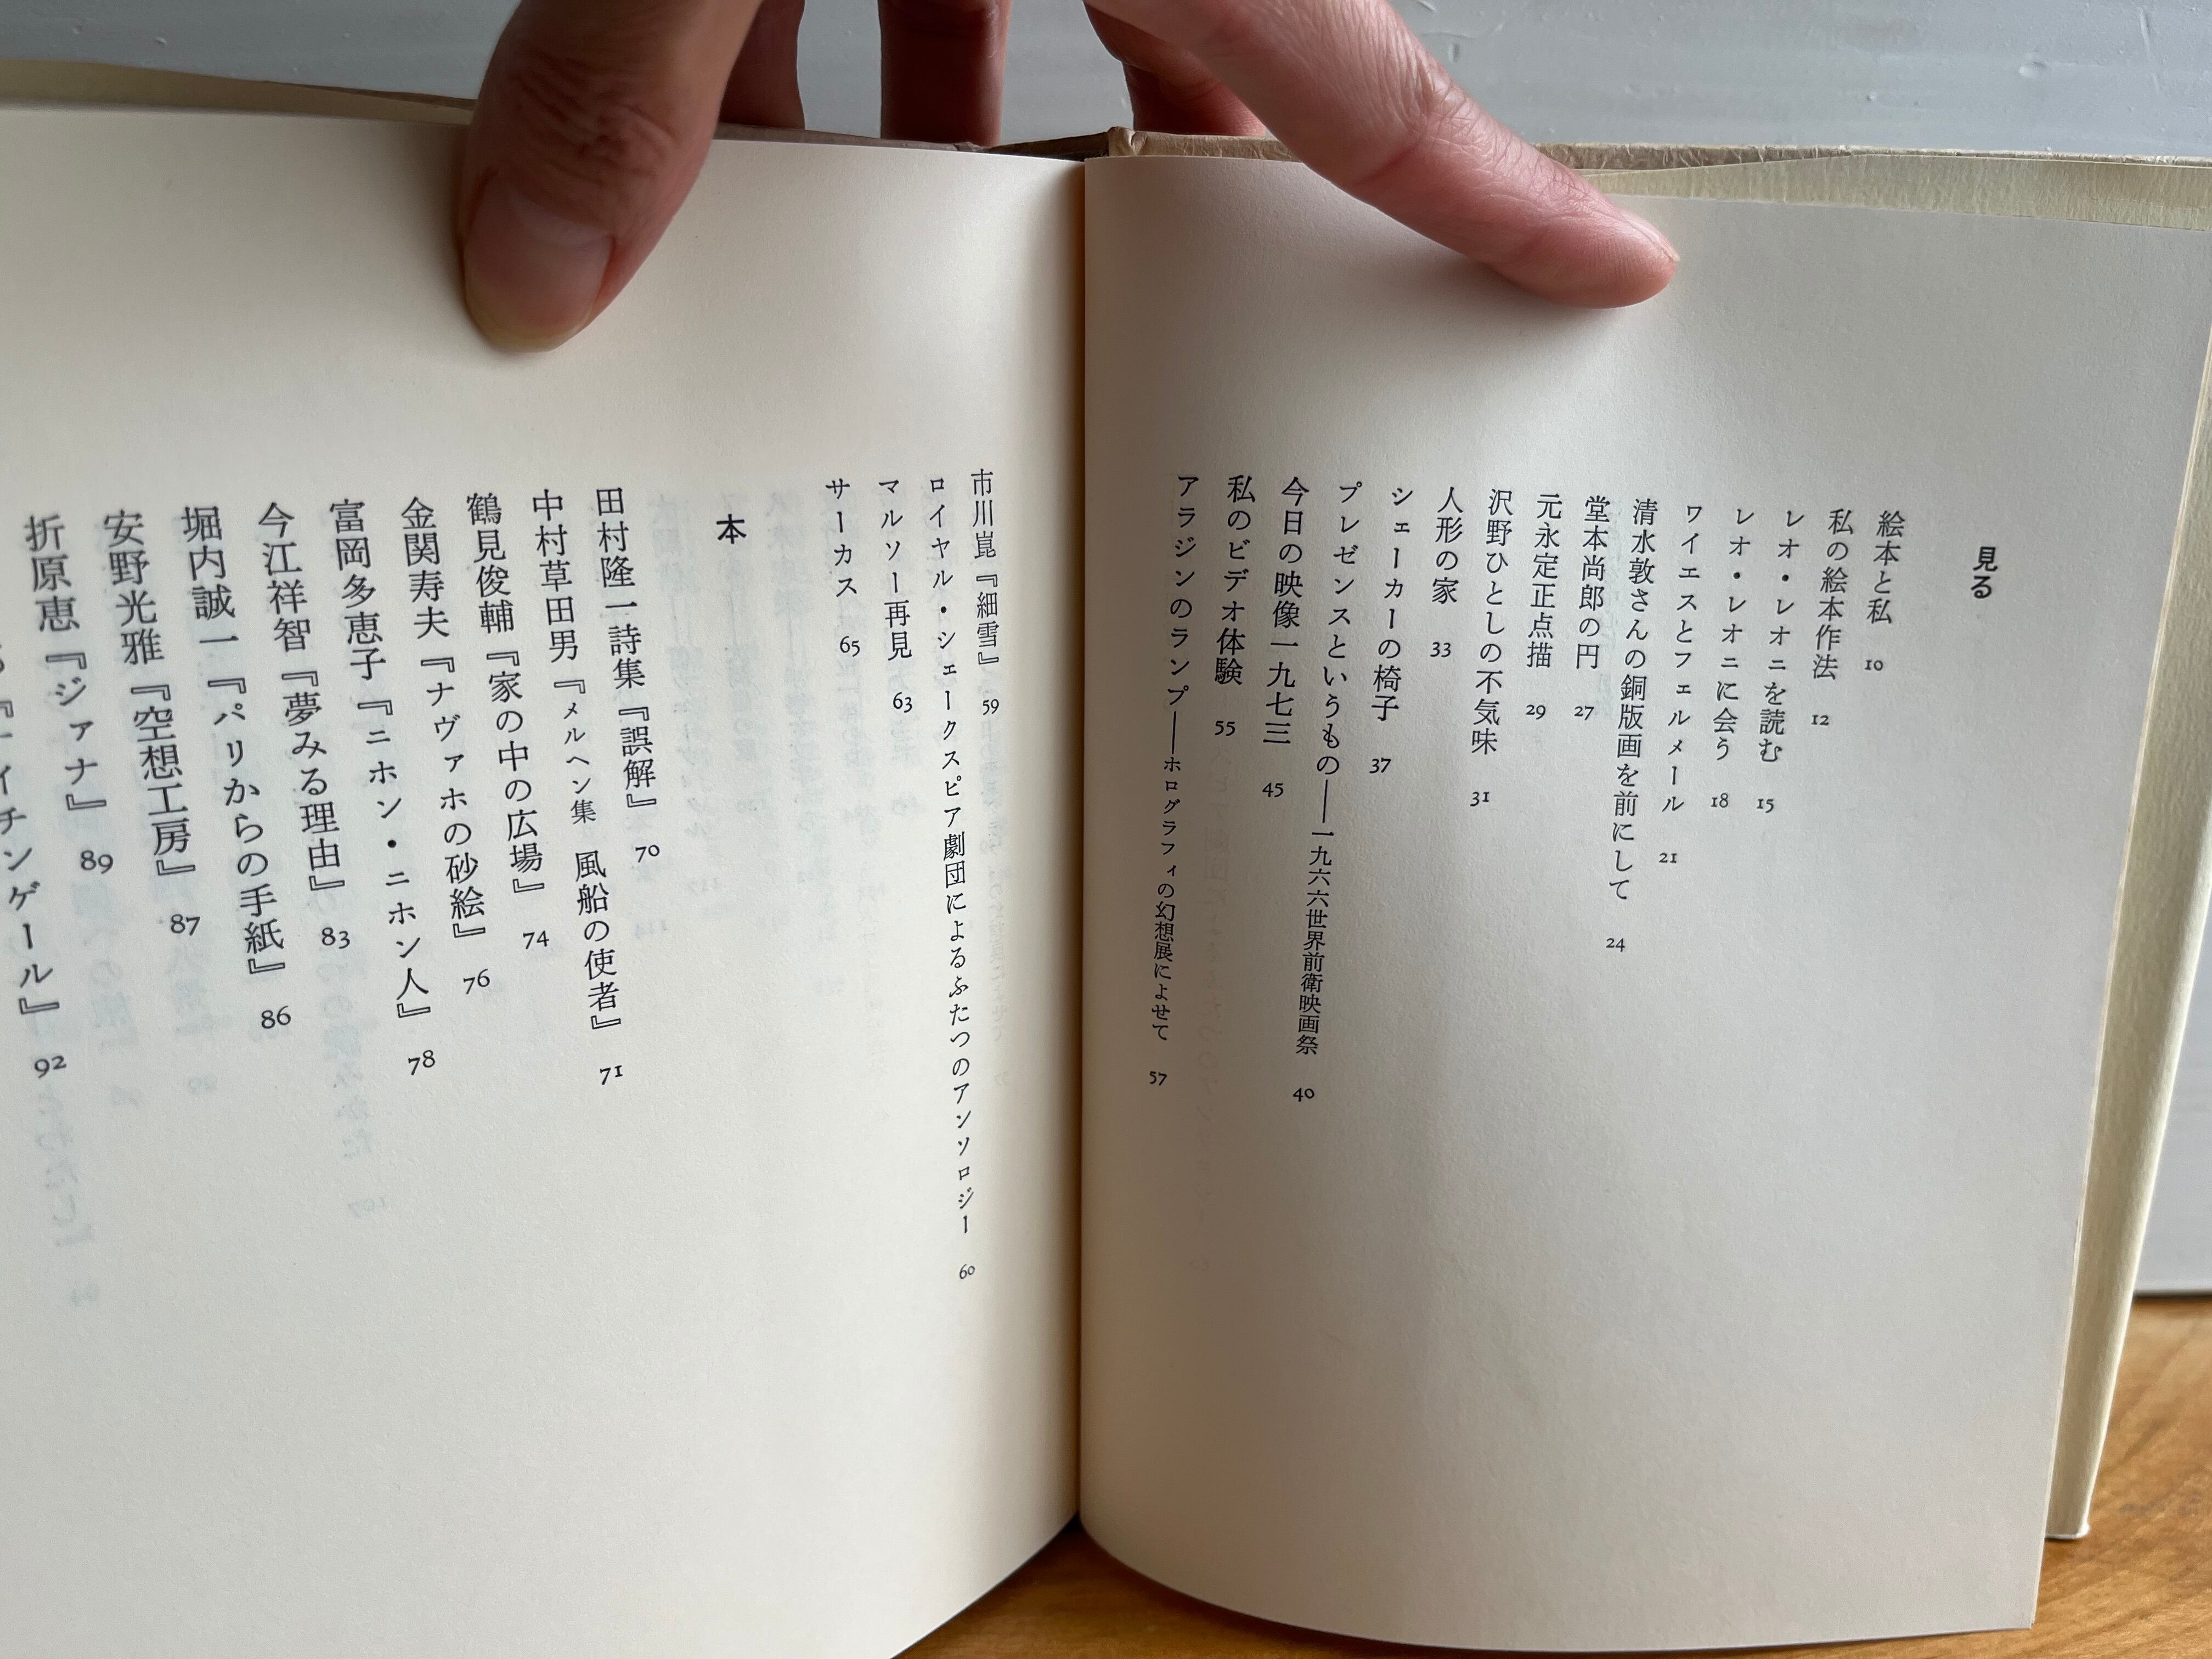 見る
絵本と私 10
私の絵本作法 12
レオ・レオニを読む 15
レオ・レオニに会う 18
ワイエスとフェルメール 21
清水敦さんの銅版画を前にして 24
堂本尚郎の円 27
元永定正点描 29
沢野ひとしの不気味 31
人形の家 33
シェーカーの椅子 37
プレゼンスというもの——一九六六世界前衛映画祭 40
今日の映像一九七三 45
私のビデオ体験 55
アラジンのランプ——ホログラフィの幻想展によせて 57
市川崑『細雪』 59
ロイヤル・シェークスピア劇団によるふたつのアンソロジー 60
マルソー再見 63
サーカス 65
本
田村隆一詩集『誤解』 70
中村草田男『メルヘン集 風船の使者』 71
鶴見俊輔『家の中の広場』 74
金関寿夫『ナヴァホの砂絵』 76
富岡多恵子『ニホン・ニホン人』 78
今江祥智『夢みる理由』 83
堀内誠一『パリからの手紙』 86
安野光雅『空想工房』 87
折原恵『ジァナ』 89
イチンゲール』 92